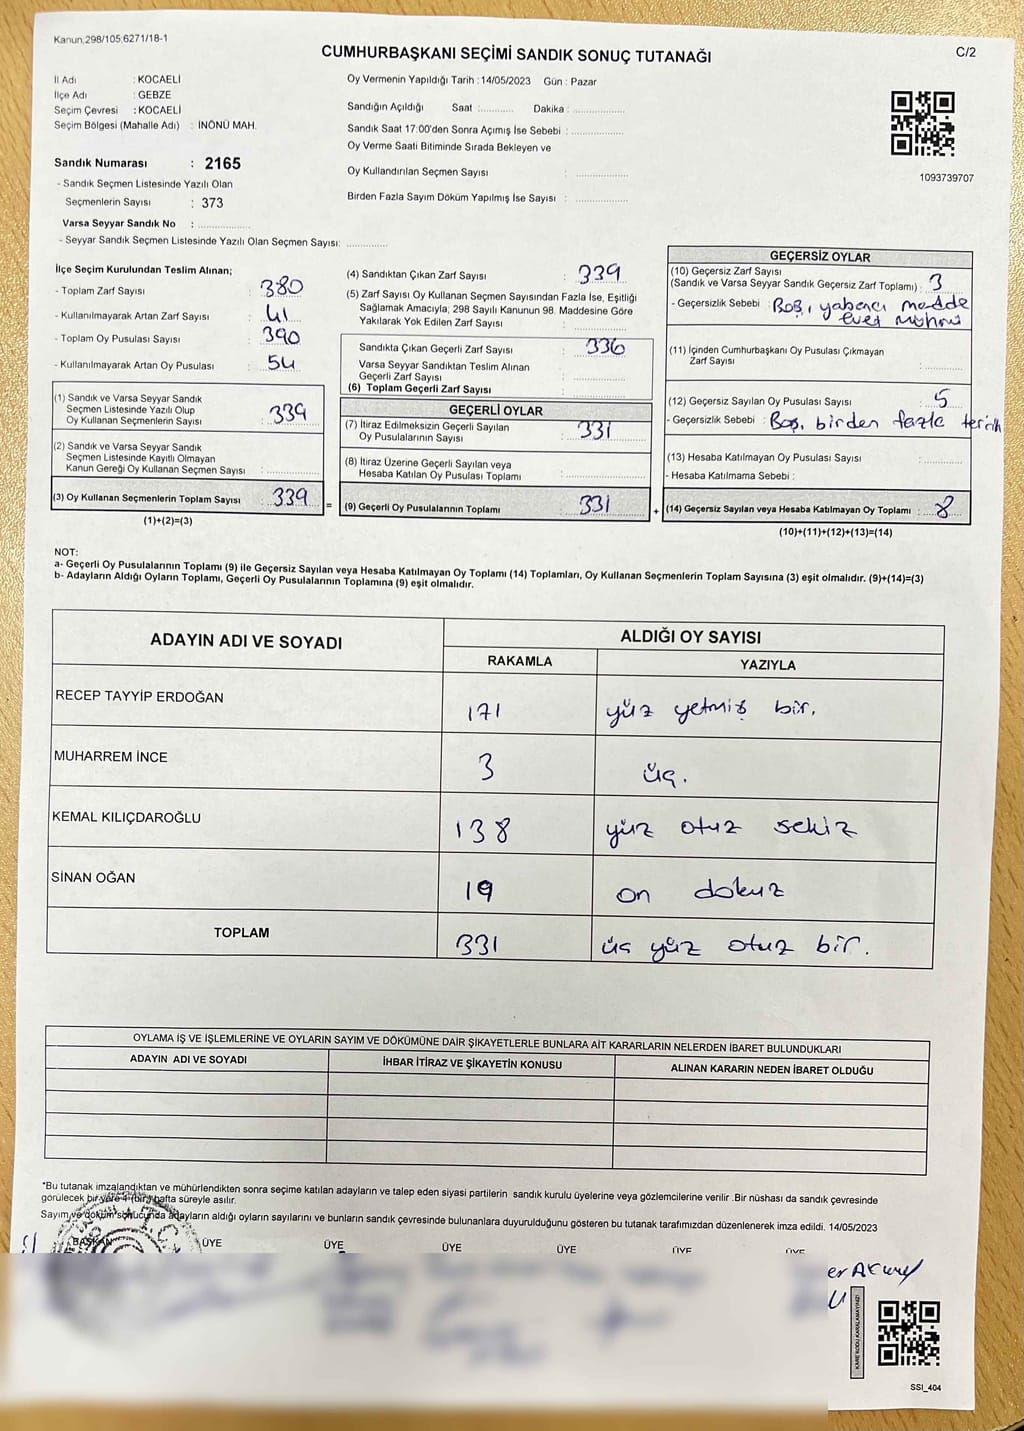 Kanun;298/105,6271/18-1
CUMHURBAŞKANI SEÇİMİ SANDIK SONUÇ TUTANAĞI
C/2
İl Adı : KOCAELİ
İlçe Adı : GEBZE
Seçim Çevresi : KOCAELİ
Seçim Bölgesi (Mahalle Adı) : İNÖNÜ MAH.
Sandık Numarası : 2165
- Sandık Seçmen Listesinde Yazılı Olan
Seçmenlerin Sayısı : 373
Varsa Seyyar Sandık No :
- Seyyar Sandık Seçmen Listesinde Yazılı Olan Seçmen Sayısı:
Oy Vermenin Yapıldığı Tarih : 14/05/2023 Gün : Pazar
Sandığın Açıldığı Saat : Dakika :
Sandık Saat 17:00'den Sonra Açımış İse Sebebi :
Oy Verme Saati Bitiminde Sırada Bekleyen ve
Oy Kullandırılan Seçmen Sayısı :
Birden Fazla Sayım Döküm Yapılmış İse Sayısı :
1093739707
İlçe Seçim Kurulundan Teslim Alınan;
- Toplam Zarf Sayısı : 380
- Kullanılmayarak Artan Zarf Sayısı : 41
- Toplam Oy Pusulası Sayısı : 390
- Kullanılmayarak Artan Oy Pusulası : 54
(1) Sandık ve Varsa Seyyar Sandık
Seçmen Listesinde Yazılı Olup
Oy Kullanan Seçmenlerin Sayısı : 339
(2) Sandık ve Varsa Seyyar Sandık
Seçmen Listesinde Kayıtlı Olmayan
Kanun Gereği Oy Kullanan Seçmen Sayısı :
(3) Oy Kullanan Seçmenlerin Toplam Sayısı : 339
(1)+(2)=(3)
(4) Sandıktan Çıkan Zarf Sayısı : 339
(5) Zarf Sayısı Oy Kullanan Seçmen Sayısından Fazla İse, Eşitliği
Sağlamak Amacıyla; 298 Sayılı Kanunun 98. Maddesine Göre
Yakılarak Yok Edilen Zarf Sayısı :
Sandıkta Çıkan Geçerli Zarf Sayısı : 336
Varsa Seyyar Sandıktan Teslim Alınan
Geçerli Zarf Sayısı :
(6) Toplam Geçerli Zarf Sayısı :
GEÇERLİ OYLAR
(7) İtiraz Edilmeksizin Geçerli Sayılan
Oy Pusulalarının Sayısı : 331
(8) İtiraz Üzerine Geçerli Sayılan veya
Hesaba Katılan Oy Pusulası Toplamı :
= (9) Geçerli Oy Pusulalarının Toplamı : 331 +
GEÇERSİZ OYLAR
(10) Geçersiz Zarf Sayısı
(Sandık ve Varsa Seyyar Sandık Geçersiz Zarf Toplamı) : 3
- Geçersizlik Sebebi : Boş, yabancı madde
evet mührü
(11) İçinden Cumhurbaşkanı Oy Pusulası Çıkmayan
Zarf Sayısı :
(12) Geçersiz Sayılan Oy Pusulası Sayısı : 5
- Geçersizlik Sebebi : Boş, birden fazla tercih
(13) Hesaba Katılmayan Oy Pusulası Sayısı :
- Hesaba Katılmama Sebebi :
(14) Geçersiz Sayılan veya Hesaba Katılmayan Oy Toplamı : 8
(10)+(11)+(12)+(13)=(14)
NOT:
a- Geçerli Oy Pusulalarının Toplamı (9) ile Geçersiz Sayılan veya Hesaba Katılmayan Oy Toplamı (14) Toplamları, Oy Kullanan Seçmenlerin Toplam Sayısına (3) eşit olmalıdır. (9)+(14)=(3)
b- Adayların Aldığı Oyların Toplamı, Geçerli Oy Pusulalarının Toplamına (9) eşit olmalıdır.
ADAYIN ADI VE SOYADI ALDIĞI OY SAYISI
RAKAMLA YAZIYLA
RECEP TAYYİP ERDOĞAN 171 yüz yetmiş bir.
MUHARREM İNCE 3 üç.
KEMAL KILIÇDAROĞLU 138 yüz otuz sekiz
SİNAN OĞAN 19 on dokuz
TOPLAM 331 üç yüz otuz bir.
OYLAMA İŞ VE İŞLEMLERİNE VE OYLARIN SAYIM VE DÖKÜMÜNE DAİR ŞİKAYETLERLE BUNLARA AİT KARARLARIN NELERDEN İBARET BULUNDUKLARI
ADAYIN ADI VE SOYADI İHBAR İTİRAZ VE ŞİKAYETİN KONUSU ALINAN KARARIN NEDEN İBARET OLDUĞU
*Bu tutanak imzalandıktan ve mühürlendikten sonra seçime katılan adayların ve talep eden siyasi partilerin sandık kurulu üyelerine veya gözlemcilerine verilir .Bir nüshası da sandık çevresinde
görülecek bir yere 1 (bir) hafta süreyle asılır.
Sayım ve döküm sonucunda adayların aldığı oyların sayılarını ve bunların sandık çevresinde bulunanlara duyurulduğunu gösteren bu tutanak tarafımızdan düzenlenerek imza edildi. 14/05/2023
BAŞKAN ÜYE ÜYE ÜYE ÜYE ÜYE ÜYE
T.C.
SSI_404